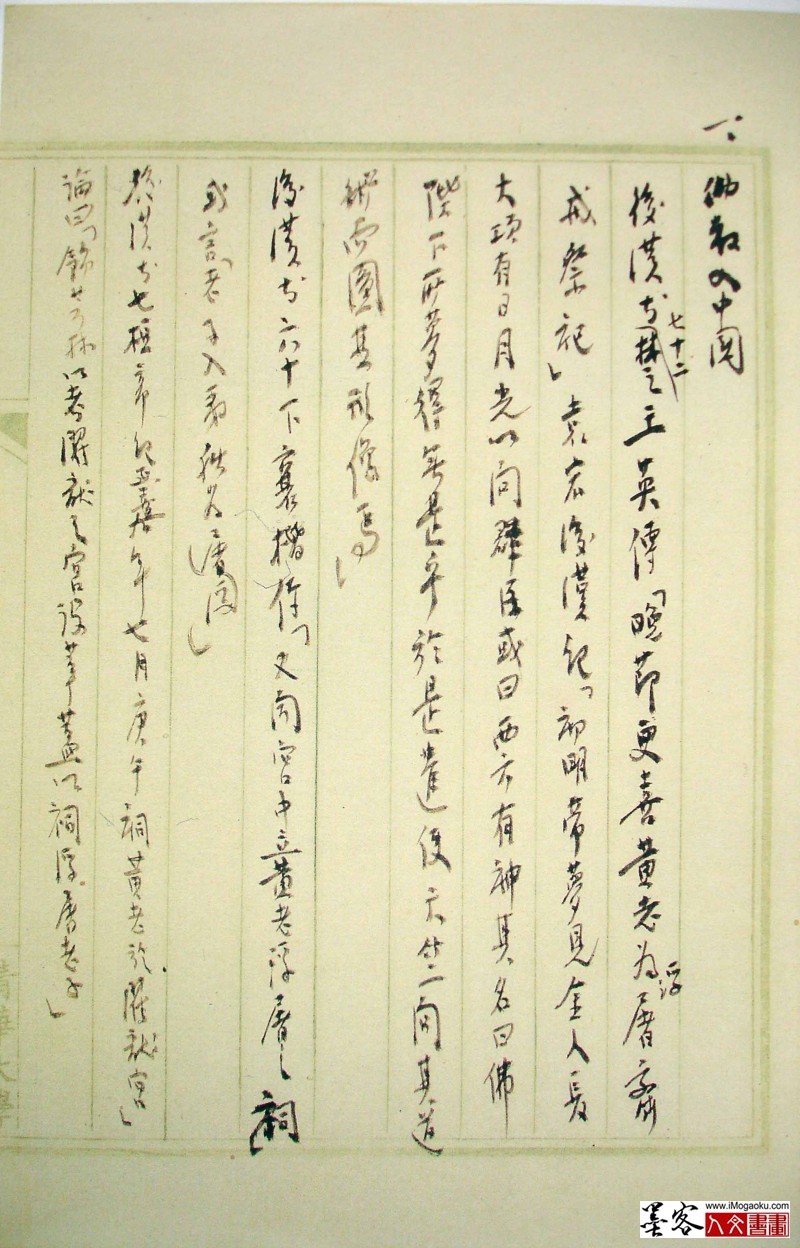 一、佛教入中国
後漢書七十二楚王英傳「晚節更喜黃老為浮屠齋
戒祭祀」袁宏後漢紀「初明帝夢見金人長
大項有日月光以问群臣或曰西方有神其名曰佛
陛下所夢得無是乎於是遣使天竺问其道
術而圖其形像焉」
後漢书六十下襄楷传「又闻宫中立黄老浮屠之祠
或言老子入夷狄为浮屠」
後漢书七桓帝纪 年七月庚午祠黃老於濯龍宫」
論曰「飾芳林以考濯龍之宫設華蓋以祠浮屠老子」
清華大學
墨客
www.iMogaoku.com
人文書畫